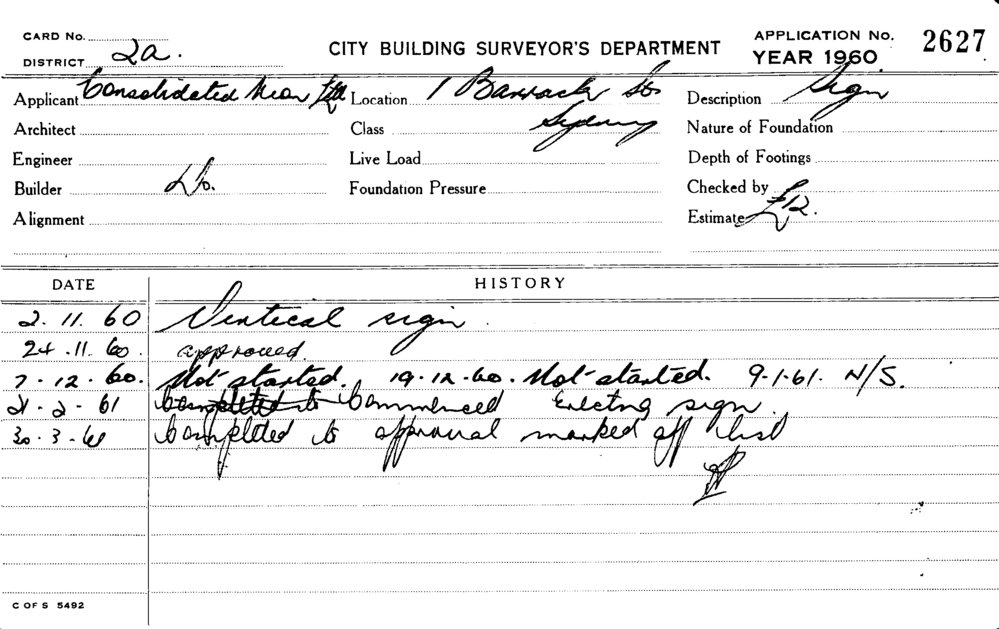 CARD No.
DISTRICT 2a.
CITY BUILDING SURVEYOR'S DEPARTMENT
APPLICATION No. 2627
YEAR 1960
Applicant Consolidated Neon Ltd Location 1 Barrack St Description Sign
Architect Class Sydney Nature of Foundation
Engineer Live Load Depth of Footings
Builder Do. Foundation Pressure Checked by
Alignment Estimate £
DATE HISTORY
2.11.60 Vertical sign.
24.11.60. approved.
7.12.60. Not started. 19.12.60. Not started. 9.1.61. N/S.
21.2.61 Completed to Commenced Erecting sign.
30.3.61 Completed to approval marked off list
C OF S 5492